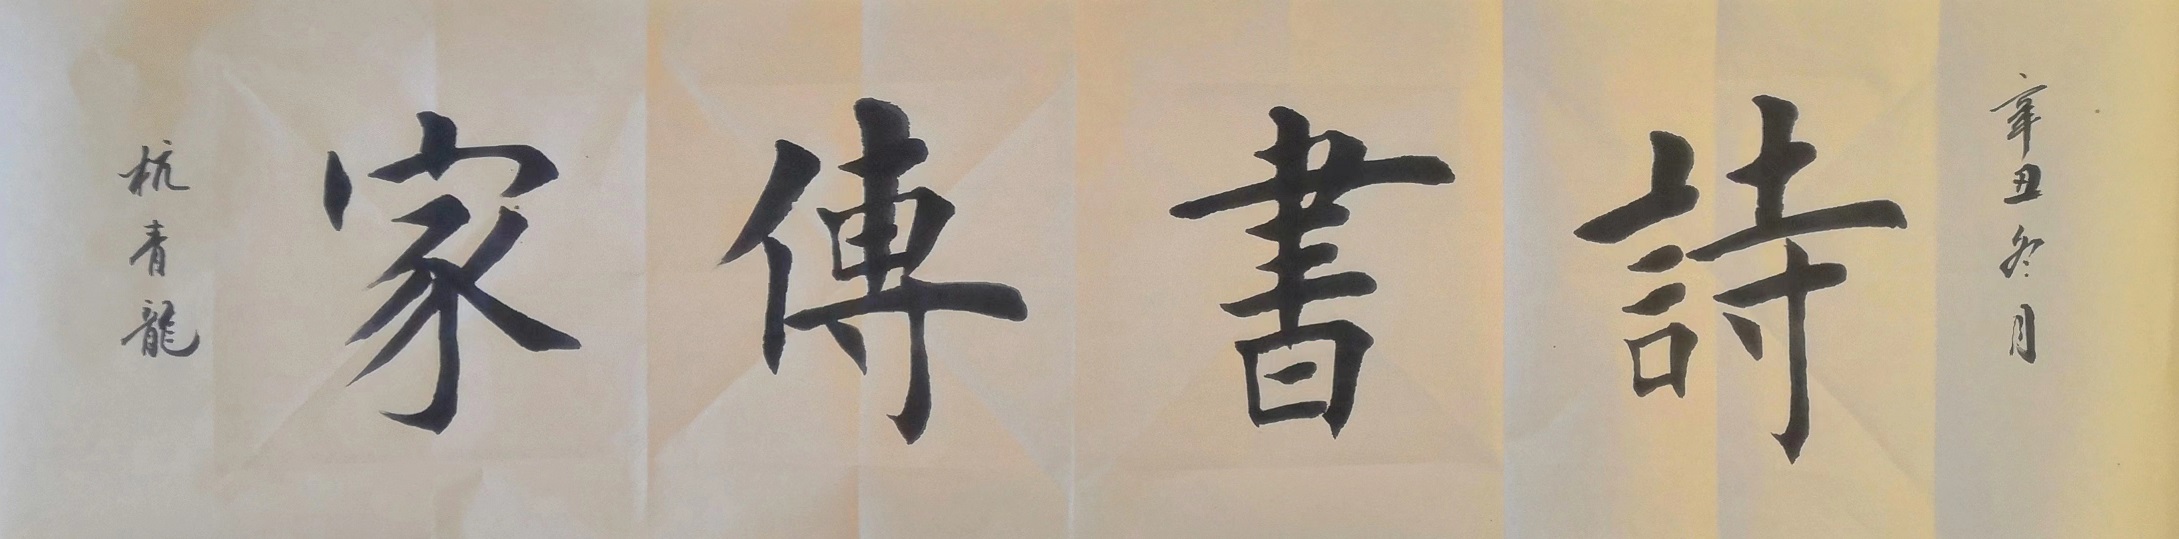 辛丑冬月
詩書傳家
杭青龍